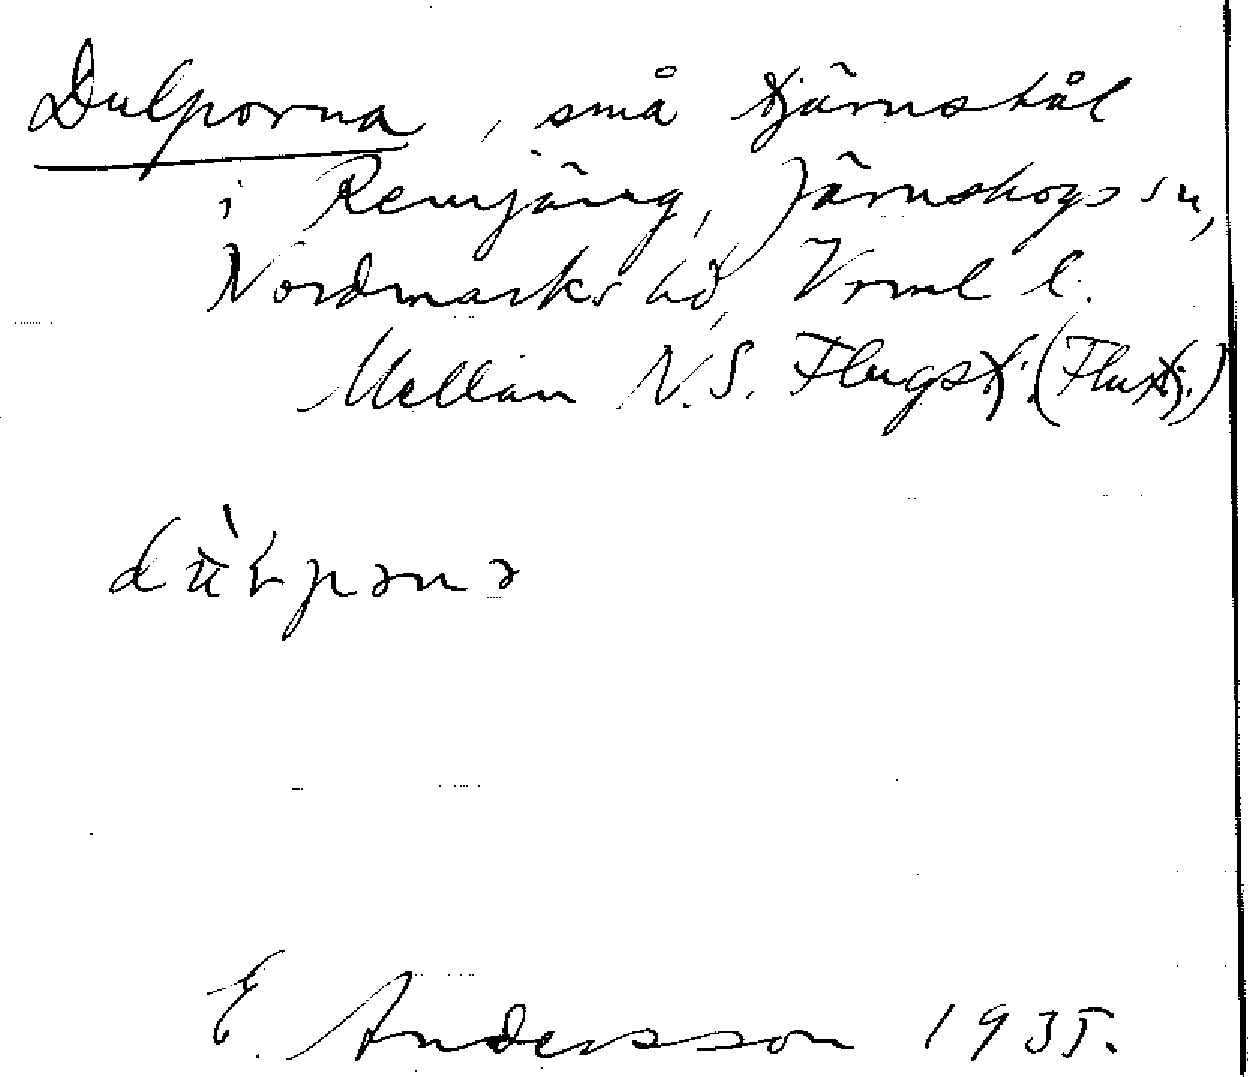 Dulporna, små tjärnshål
i Remjäng, Järnskogs sn,
Nordmarks hd, Vrml l.
Mellan N. S. Flugstj. (Fluxtj.)
E. Andersson 1935.